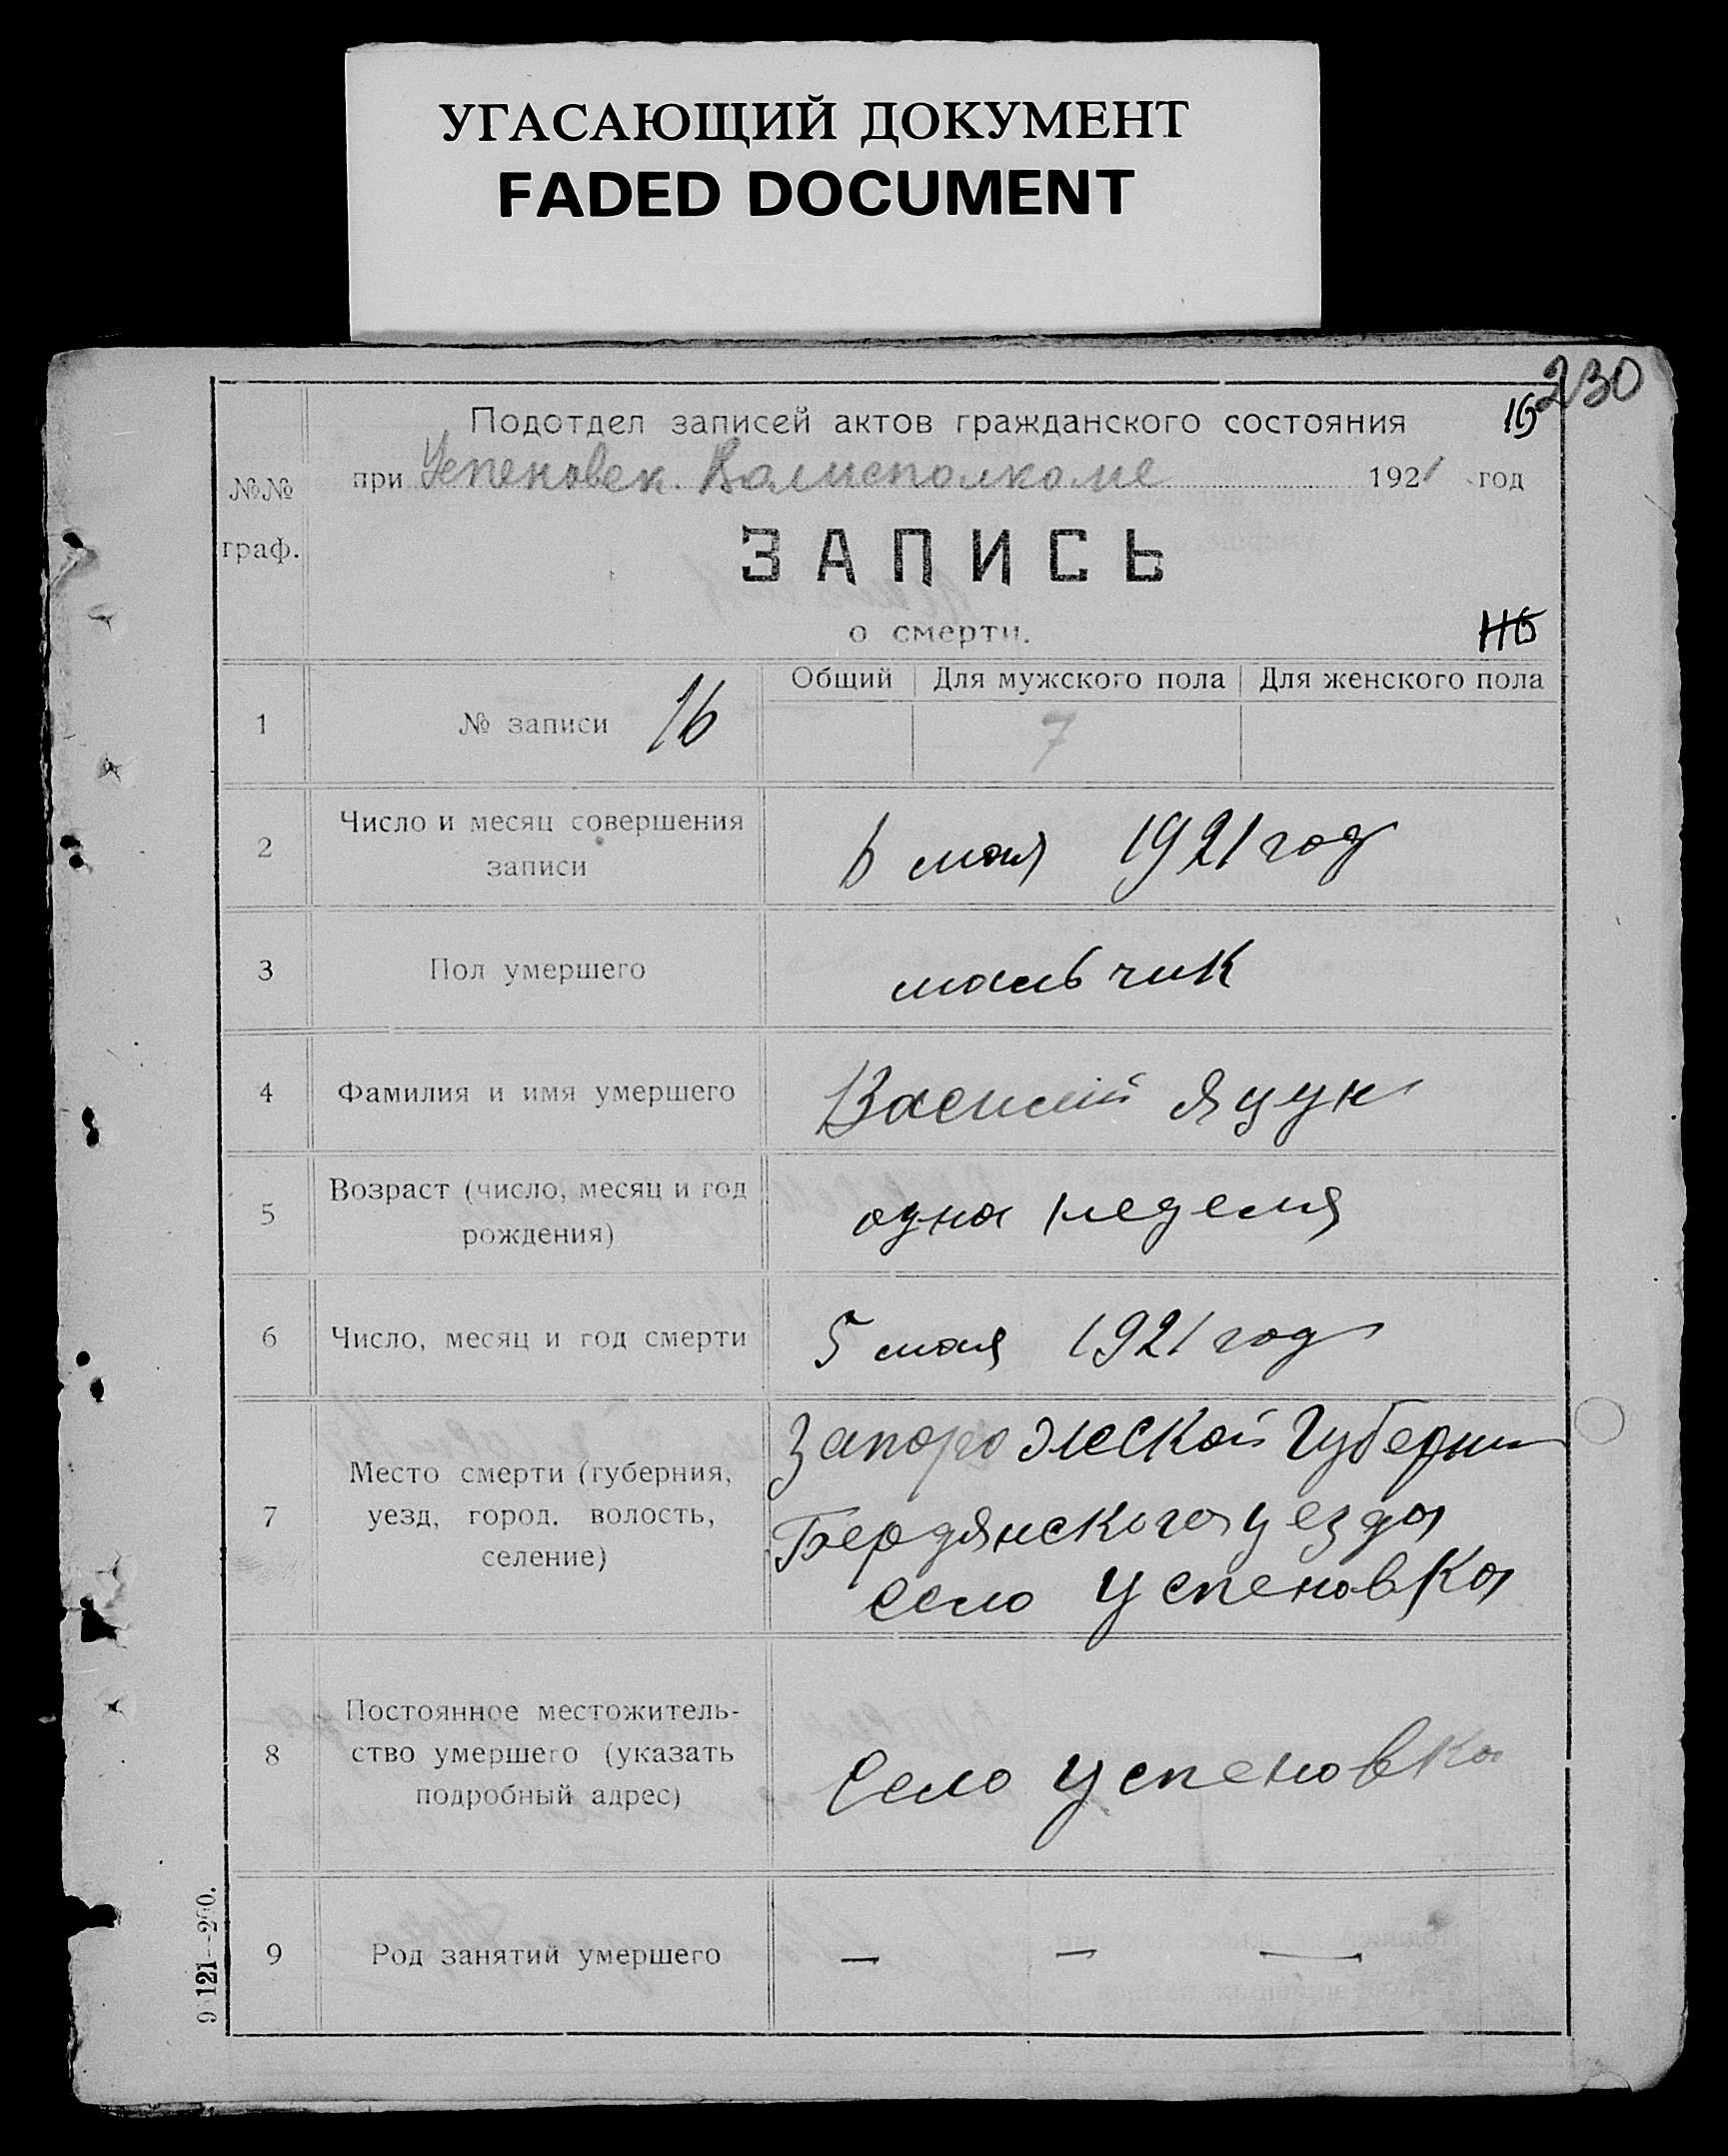 УГАСАЮЩИЙ ДОКУМЕНТ
FADED DOCUMENT
230
16
Подотдел записей актов гражданского состояния
при Успеновск. Волисполкоме 1921 год
№№
граф.
ЗАПИСЬ
о смерти.
1 № записи 16
Общий Для мужского пола Для женского пола
7
2 Число и месяц совершения
записи
6 мая 1921 год
3 Пол умершего мальчик
4 Фамилия и имя умершего Василий Яцун
5 Возраст (число, месяц и год
рождения)
одна неделя
6 Число, месяц и год смерти 5 мая 1921 год
7 Место смерти (губерния,
уезд, город, волость,
селение)
Запорожской Губернии
Бердянского уезда
село Успеновка
8 Постоянное местожитель-
ство умершего (указать
подробный адрес)
Село Успеновка
9 Род занятий умершего — — —